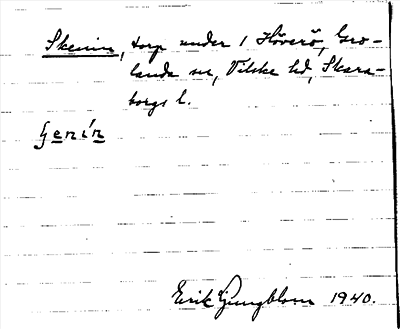 Skenin, torp under 1 Höverö, Gro-
landa sn, Vilske hd, Skara-
borgs l.
ʃenin
Erik Ljungblom 1940.